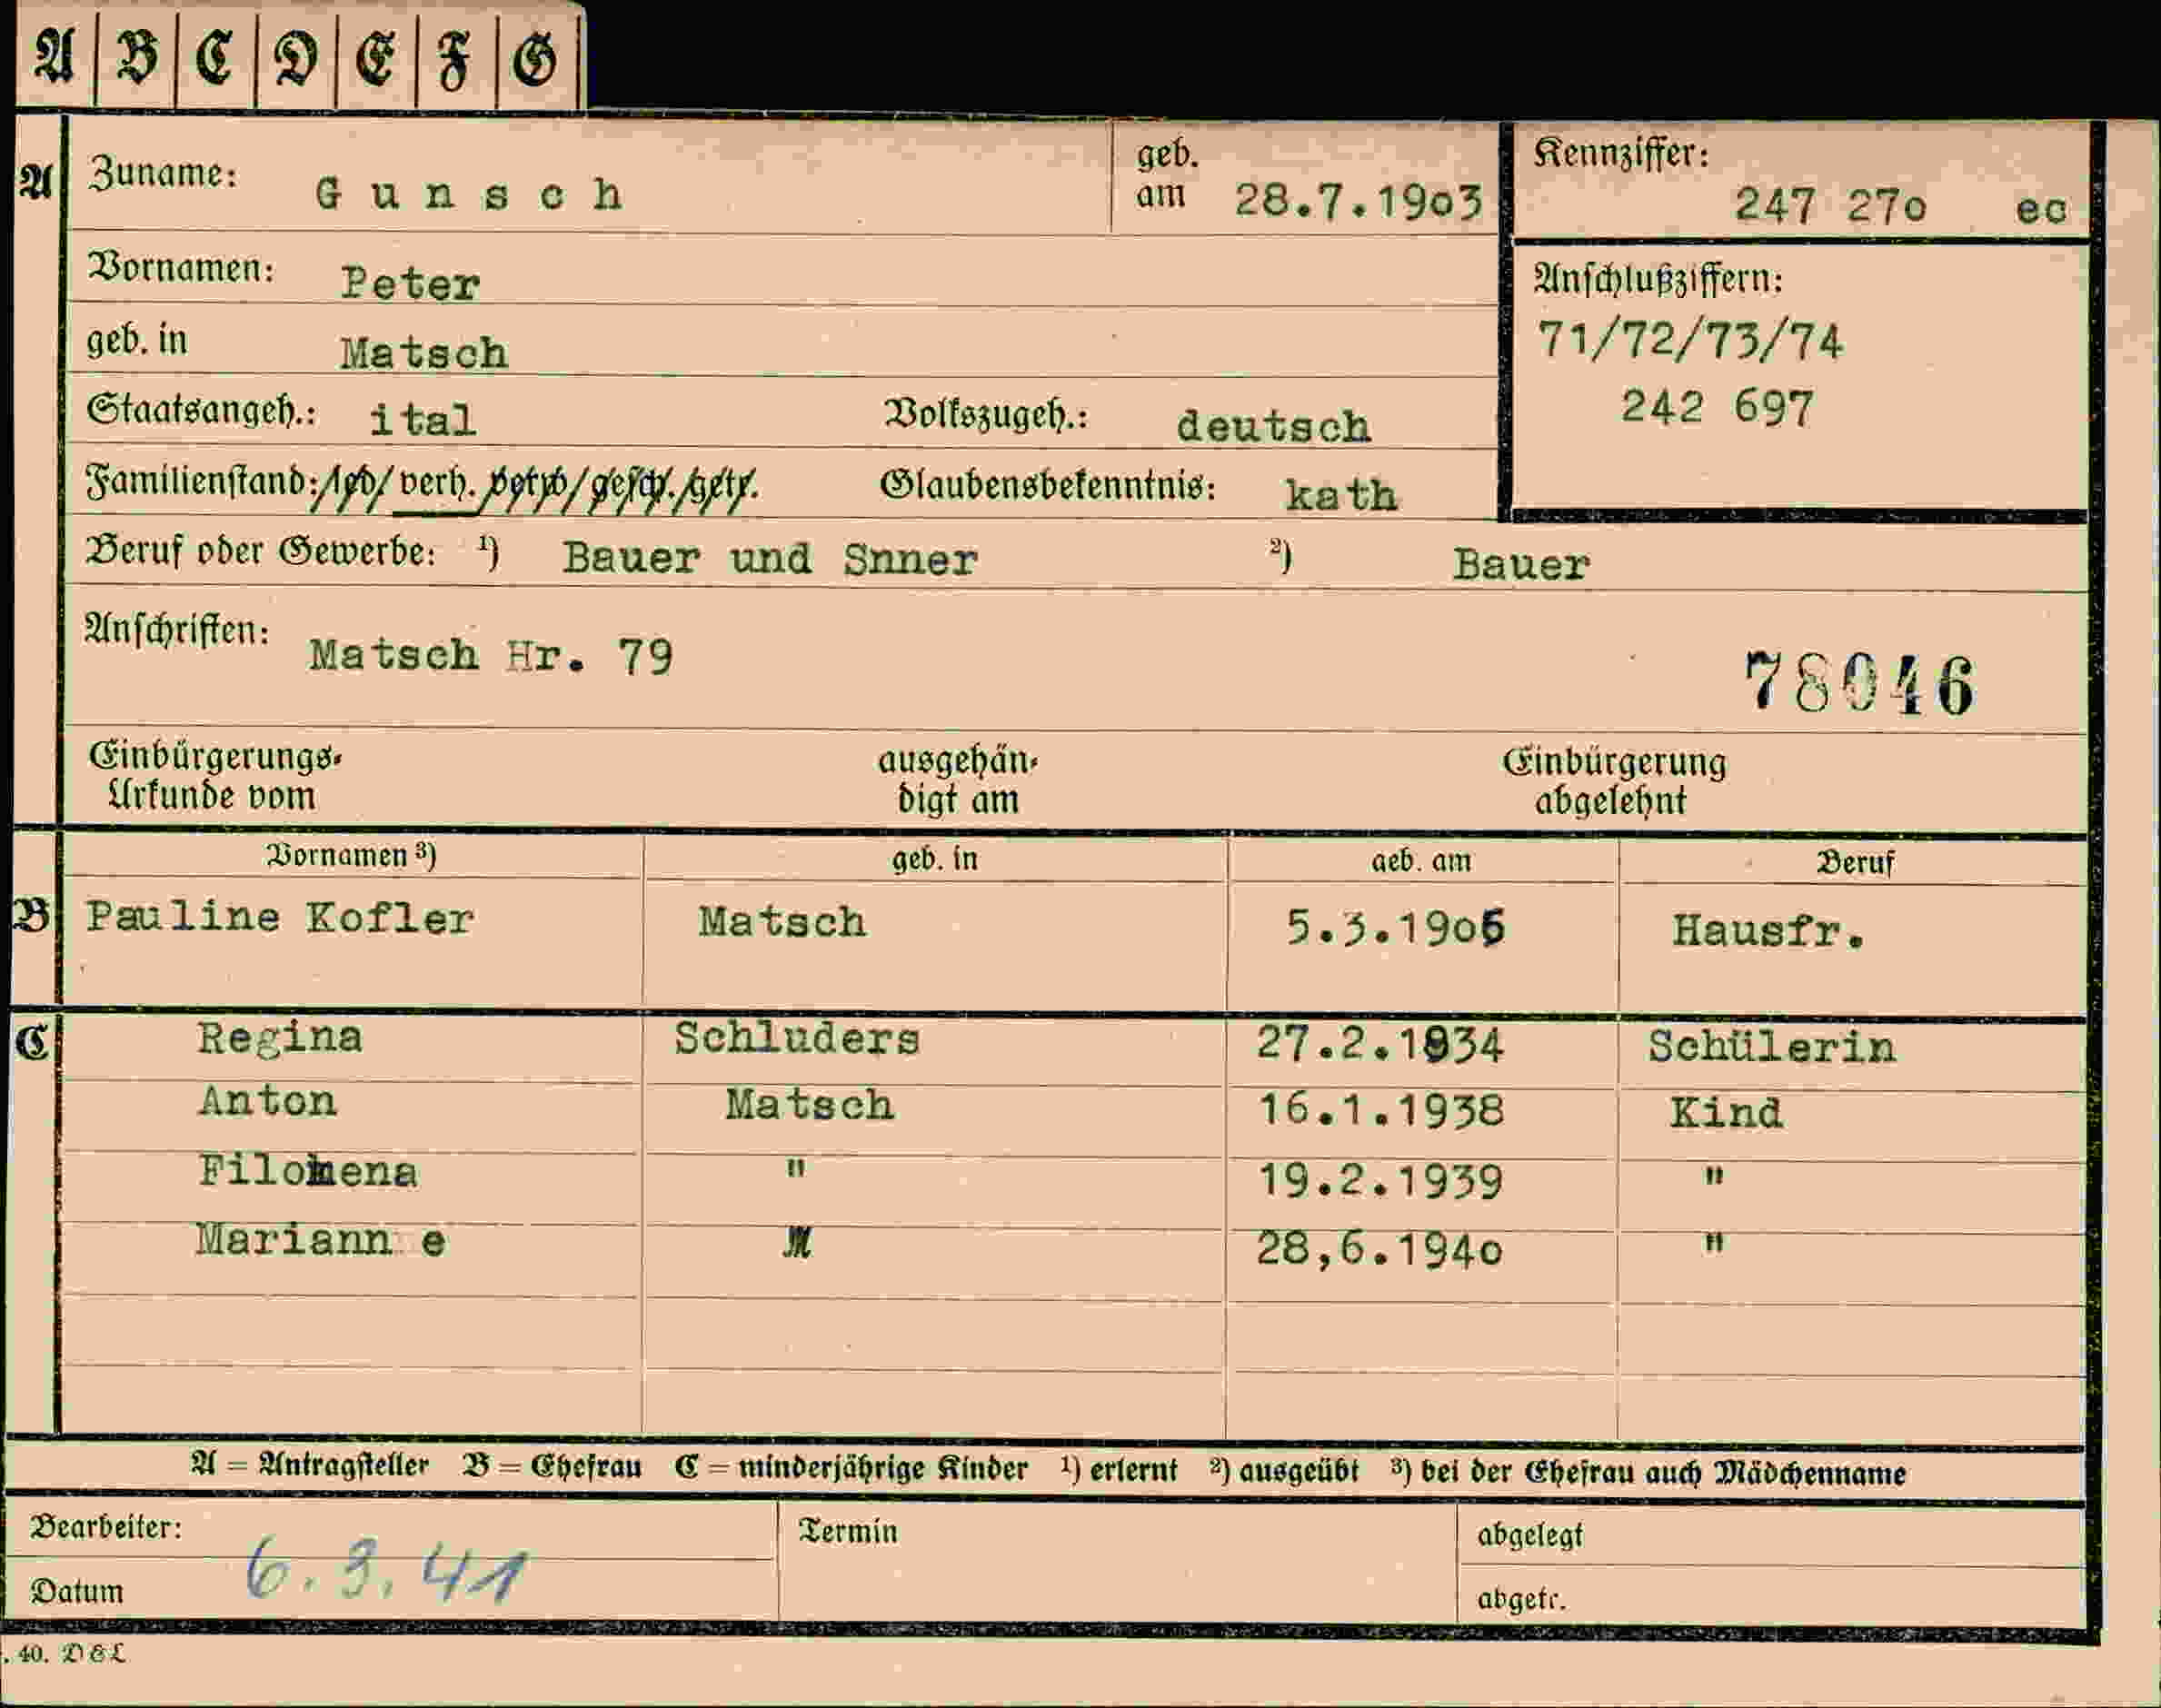 A B C D E F G
A Zuname: Gunsch geb. am 28.7.1903 Kennziffer: 247 270 ec
Vornamen: Peter
Anschlußziffern:
geb. in Matsch
71/72/73/74
Staatsangeh.: ital Volkszugeh.: deutsch
242 697
Familienstand: led/ verh. verw/gesch./getr. Glaubensbekenntnis: kath
Beruf oder Gewerbe: ¹) Bauer und Snner ²) Bauer
Anschriften: Matsch Hr. 79
78046
Einbürgerungs- ausgehän- Einbürgerung
Urkunde vom digt am abgelehnt
Vornamen ³) geb. in geb. am Beruf
B Pauline Kofler Matsch 5.3.1906 Hausfr.
C Regina Schluders 27.2.1934 Schülerin
Anton Matsch 16.1.1938 Kind
Filomena " 19.2.1939 "
Mariann e " 28,6.1940 "
A = Antragsteller B = Ehefrau C = minderjährige Kinder ¹) erlernt ²) ausgeübt ³) bei der Ehefrau auch Mädchenname
Bearbeiter: Termin abgelegt
Datum 6.3.41 abgetr.
. 40. D & L